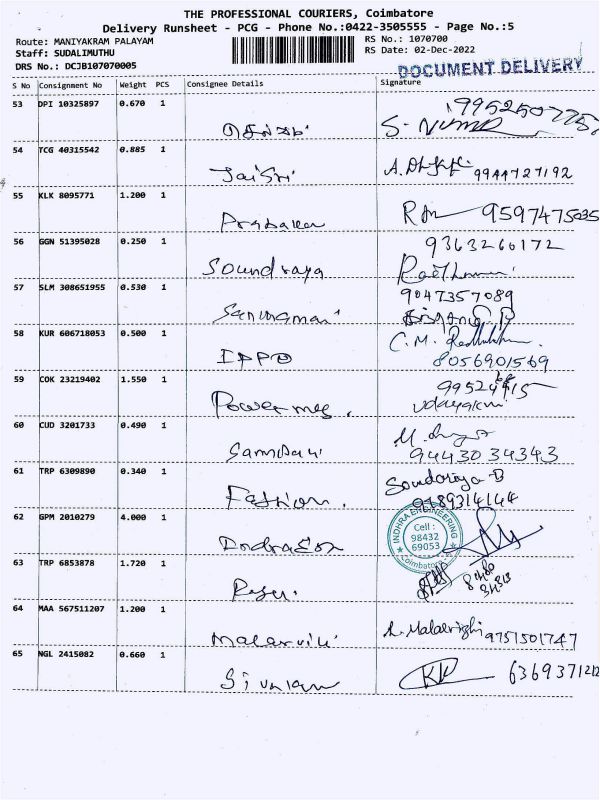 THE PROFESSIONAL COURIERS, Coimbatore
Delivery Runsheet - PCG - Phone No.:0422-3505555 - Page No.:5
Route: MANIYAKRAM PALAYAM
RS No.: 1070700
Staff: SUDALIMUTHU
RS Date: 02-Dec-2022
DRS No.: DCJB107070005
DOCUMENT DELIVERY
S No Consignment No Weight PCS Consignee Details Signature
53 DPI 10325897 0.670 1
54 TCG 40315542 0.885 1
JaiSri 9944727192
55 KLK 8095771 1.200 1
Prabakar 9597475035
56 GGN 51395028 0.250 1
9363260172
Soundraya
57 SLM 308651955 0.530 1
9047357089
58 KUR 606718053 0.500 1
C.M.
IPPO 8056901569
59 COK 23219402 1.550 1
Power
60 CUD 3201733 0.490 1
9443034343
61 TRP 6309890 0.340 1
Soudariya B
Fashion. 9789314144
62 GPM 2010279 4.000 1
INDHRA ENGINEERING
Cell :
98432
69053
Coimbatore
63 TRP 6853878 1.720 1
64 MAA 567511207 1.200 1
Malarvili 9751501747
65 NGL 2415082 0.660 1
KK 6369371212